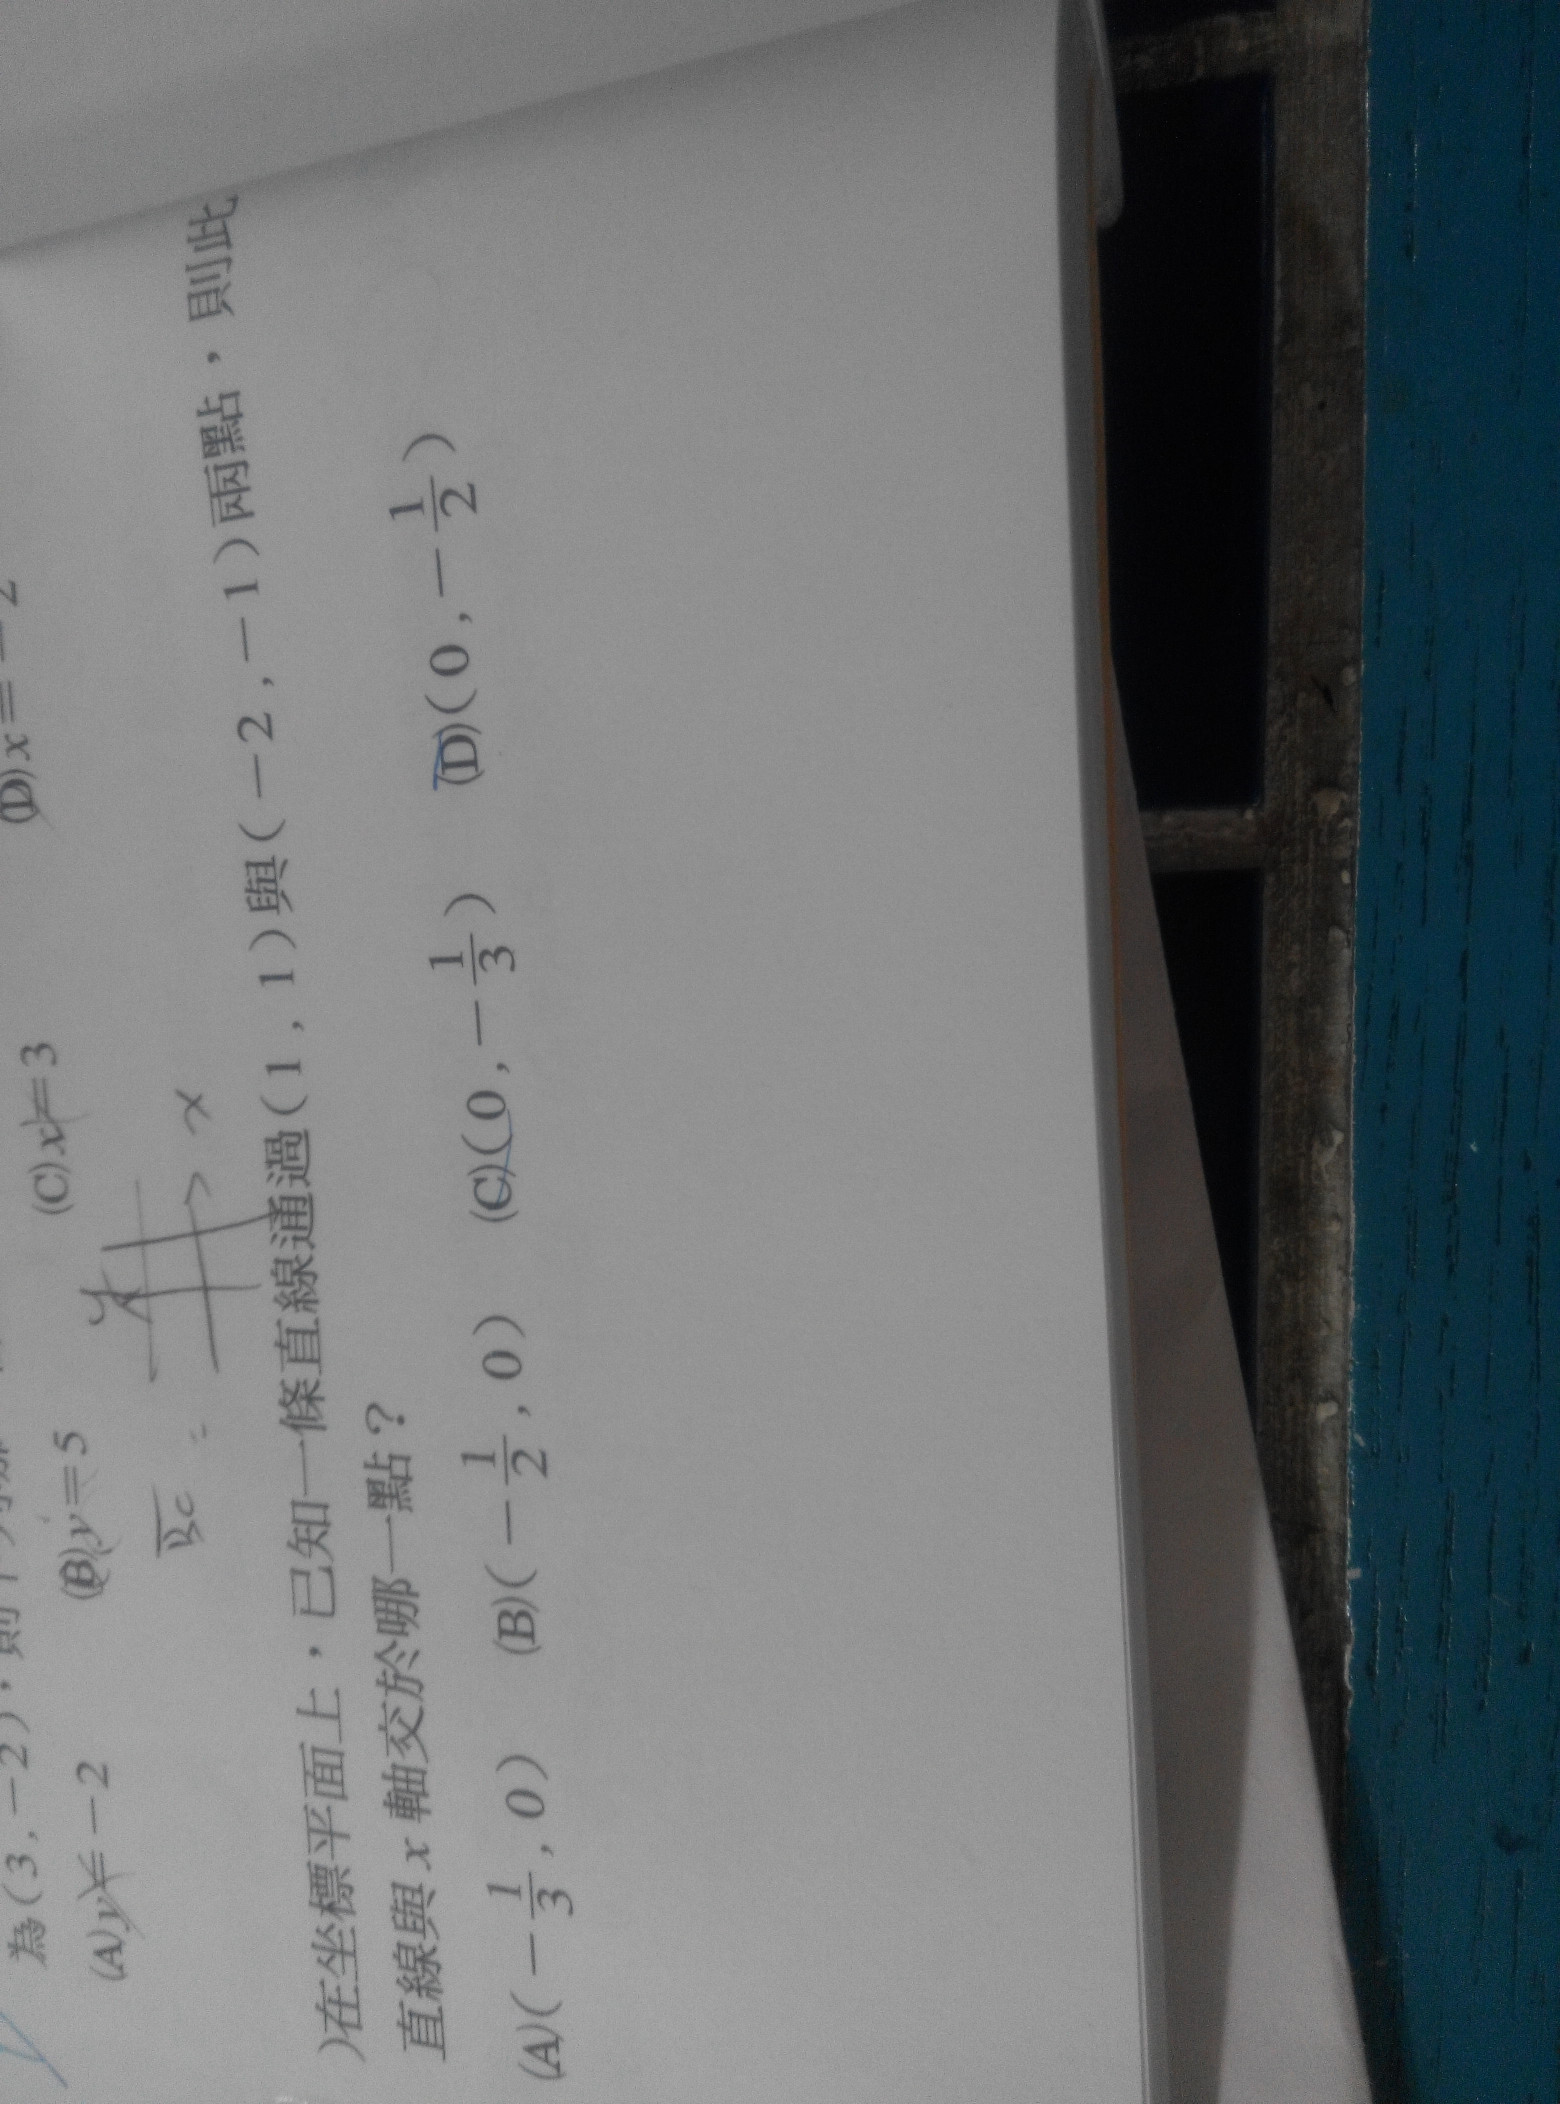 為(3,-2)，則
(A)y=-2 (B)y=5 (C)x=3 (D)x=-2
BC = y x
)在坐標平面上，已知一條直線通過(1,1)與(-2,-1)兩點，則此
直線與 x 軸交於哪一點？
(A)(-1/3,0) (B)(-1/2,0) (C)(0,-1/3) (D)(0,-1/2)